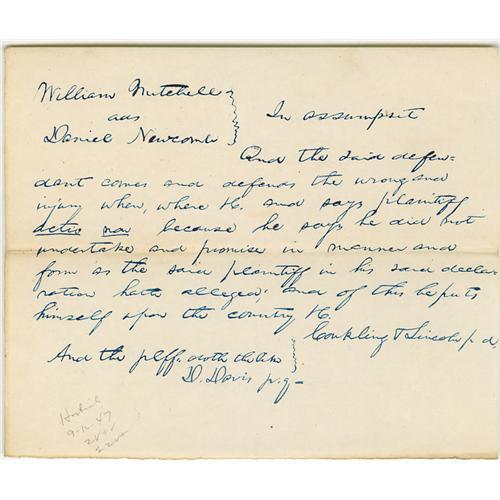 William Mitchell
ads
Daniel Newcomb
In assumpsit
And the said defen=
dant comes and defends the wrong and
injury when, where &c. and says plaintiff
actio non because he says he did not
undertake and promise in manner and
form as the said plaintiff in his said decla
ration hath alleged; and of this he puts
himself upon the country &c.
Conkling & Lincoln p. d.
And the plff. doth the like
D. Davis p. q—
9-12-47